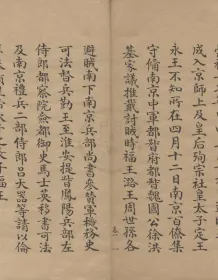 成入京師上及皇后殉宗社皇太子定王
永王不知所在四月十二日南京百僚集
守備南京中軍都督府都督魏國公徐洪
基家議推戴討賊時福王潞王周世孫各
避賊南下南京兵部尚書參贊軍務史
可法督兵勤王至淮安提督鳳陽兵部左
侍郎都察院僉都御史馬士英移書可法
及南京禮兵二部侍郎呂大器等請以倫
福王